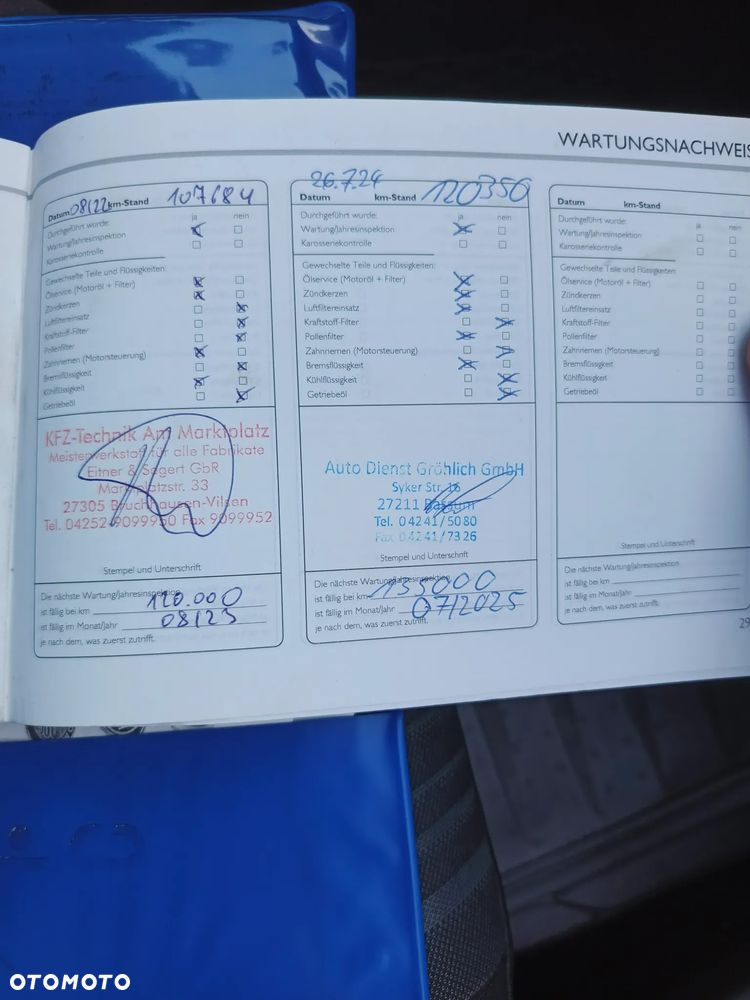 WARTUNGSNACHWEIS
Datum 08/22 km-Stand 107684
Durchgeführt wurde: ja nein
Wartung/Jahresinspektion
Karosseriekontrolle
Gewechselte Teile und Flüssigkeiten:
Ölservice (Motoröl + Filter)
Zündkerzen
Luftfiltereinsatz
Kraftstoff-Filter
Pollenfilter
Zahnriemen (Motorsteuerung)
Bremsflüssigkeit
Kühlflüssigkeit
Getriebeöl
KFZ-Technik Am Marktplatz
Meisterwerkstatt für alle Fabrikate
Eitner & Segert GbR
Marktplatzstr. 33
27305 Bruchhausen-Vilsen
Tel. 04252-9099950 Fax 9099952
Stempel und Unterschrift
Die nächste Wartung/Jahresinspektion
ist fällig bei km 120.000
ist fällig im Monat/Jahr 08/23
je nach dem, was zuerst zutrifft.
26.7.24
Datum km-Stand 120350
Durchgeführt wurde: ja nein
Wartung/Jahresinspektion
Karosseriekontrolle
Gewechselte Teile und Flüssigkeiten:
Ölservice (Motoröl + Filter)
Zündkerzen
Luftfiltereinsatz
Kraftstoff-Filter
Pollenfilter
Zahnriemen (Motorsteuerung)
Bremsflüssigkeit
Kühlflüssigkeit
Getriebeöl
Auto Dienst Gröhlich GmbH
Syker Str. 16
27211 Bassum
Tel. 04241/5080
Fax 04241/7326
Stempel und Unterschrift
Die nächste Wartung/Jahresinspektion
ist fällig bei km 135000
ist fällig im Monat/Jahr 07/2025
je nach dem, was zuerst zutrifft.
Datum km-Stand
Durchgeführt wurde: ja nein
Wartung/Jahresinspektion
Karosseriekontrolle
Gewechselte Teile und Flüssigkeiten:
Ölservice (Motoröl + Filter)
Zündkerzen
Luftfiltereinsatz
Kraftstoff-Filter
Pollenfilter
Zahnriemen (Motorsteuerung)
Bremsflüssigkeit
Kühlflüssigkeit
Getriebeöl
Stempel und Unterschrift
Die nächste Wartung/Jahresinspektion
ist fällig bei km
ist fällig im Monat/Jahr
je nach dem, was zuerst zutrifft.
29
OTOMOTO